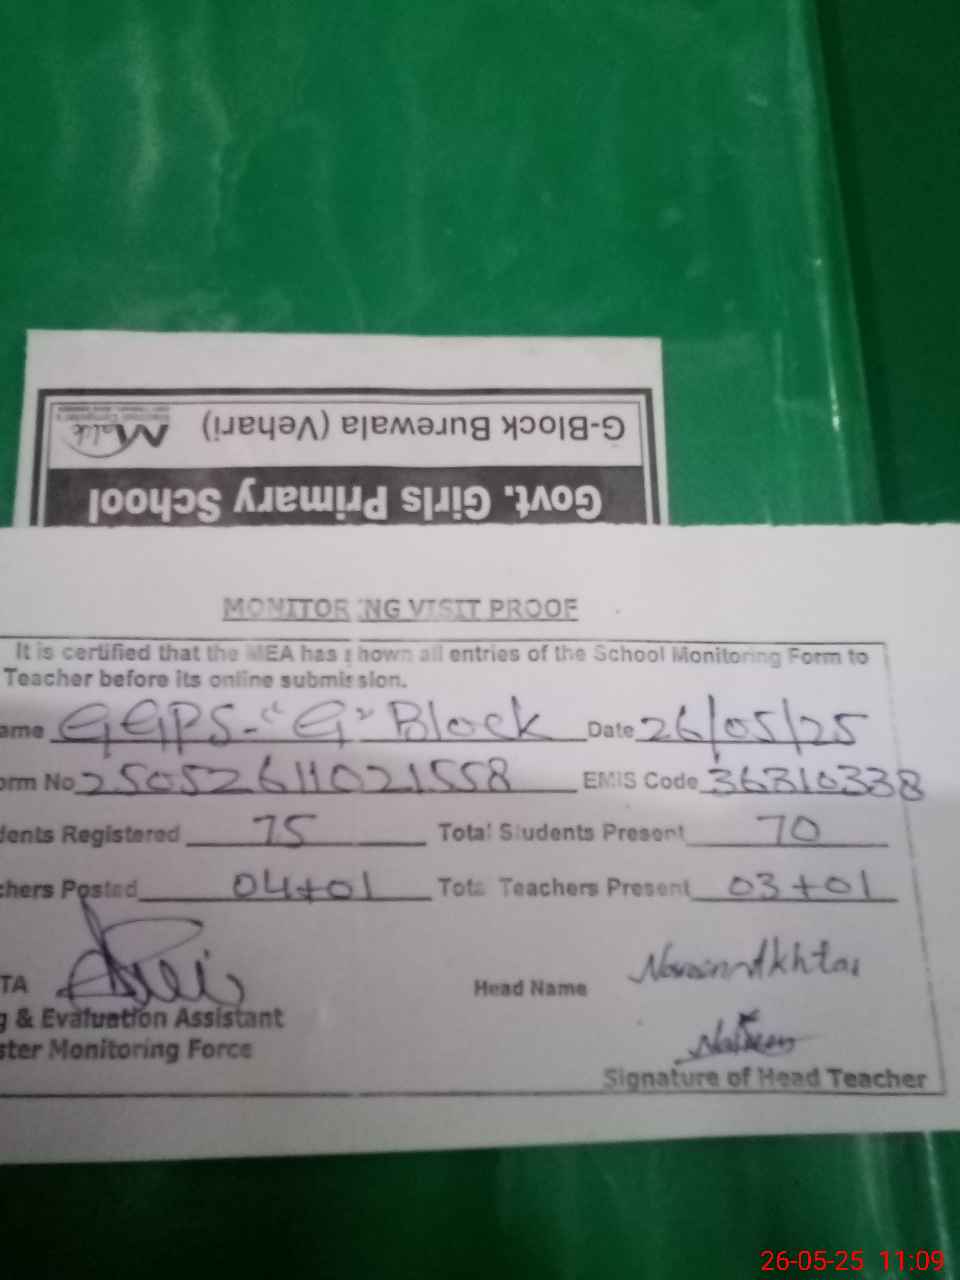 G-Block Burewala (Vehari)
Malik
Govt. Girls Primary School
MONITORING VISIT PROOF
It is certified that the MEA has shown all entries of the School Monitoring Form to
Teacher before its online submission.
ame GGPS-"G" Block Date 26/05/25
orm No 25052611021558 EMIS Code 36310338
dents Registered 75 Total Students Present 70
chers Posted 04+01 Total Teachers Present 03+01
TA Head Name
g & Evaluation Assistant
ster Monitoring Force
Signature of Head Teacher
26-05-25 11:09